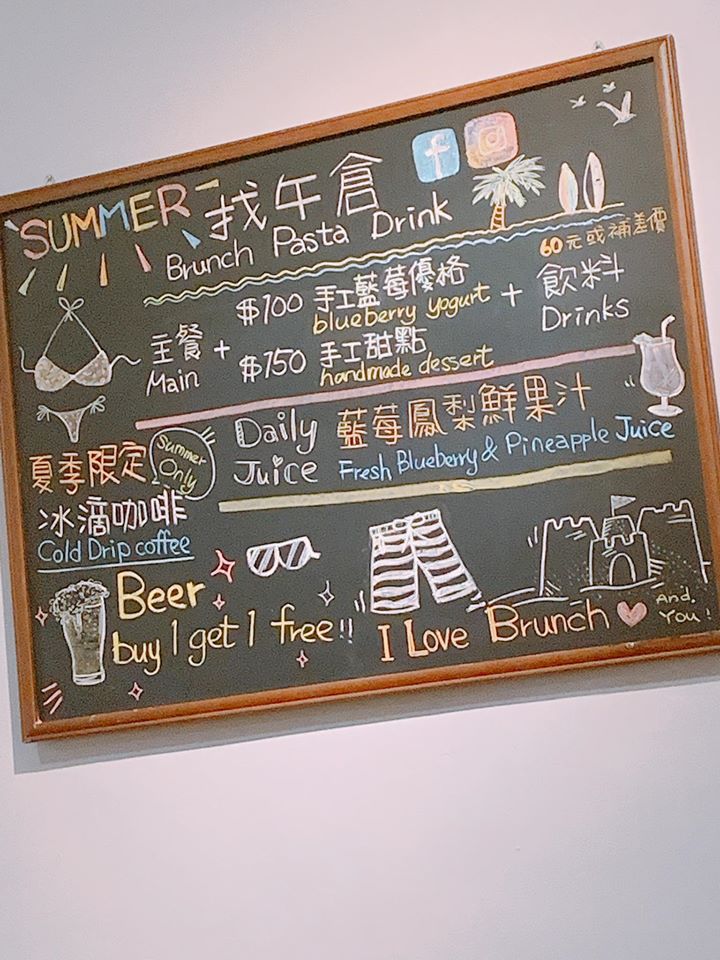 SUMMER 找午倉
Brunch Pasta Drink
60元或補差價
主餐 + $100 手工藍莓優格 + 飲料
Main blueberry yogurt Drinks
$150 手工甜點
handmade dessert
Daily Juice 藍莓鳳梨鮮果汁
Fresh Blueberry & Pineapple Juice
夏季限定 Summer Only
冰滴咖啡
Cold Drip coffee
Beer
buy 1 get 1 free!!
I Love Brunch And. You!